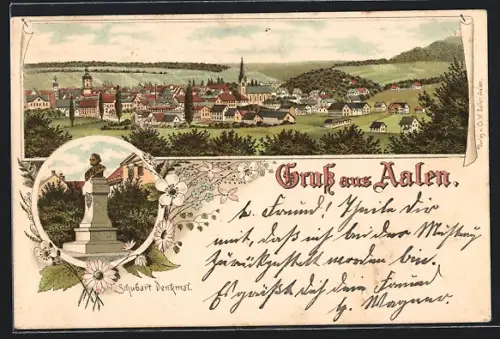 Gruß aus Aalen.
L. Freund! Theile dir
mit, daß ich bei der Musterung
zurückgestellt worden bin.
Es grüßt dich dein Freund
G. Wagner
Schubart Denkmal.